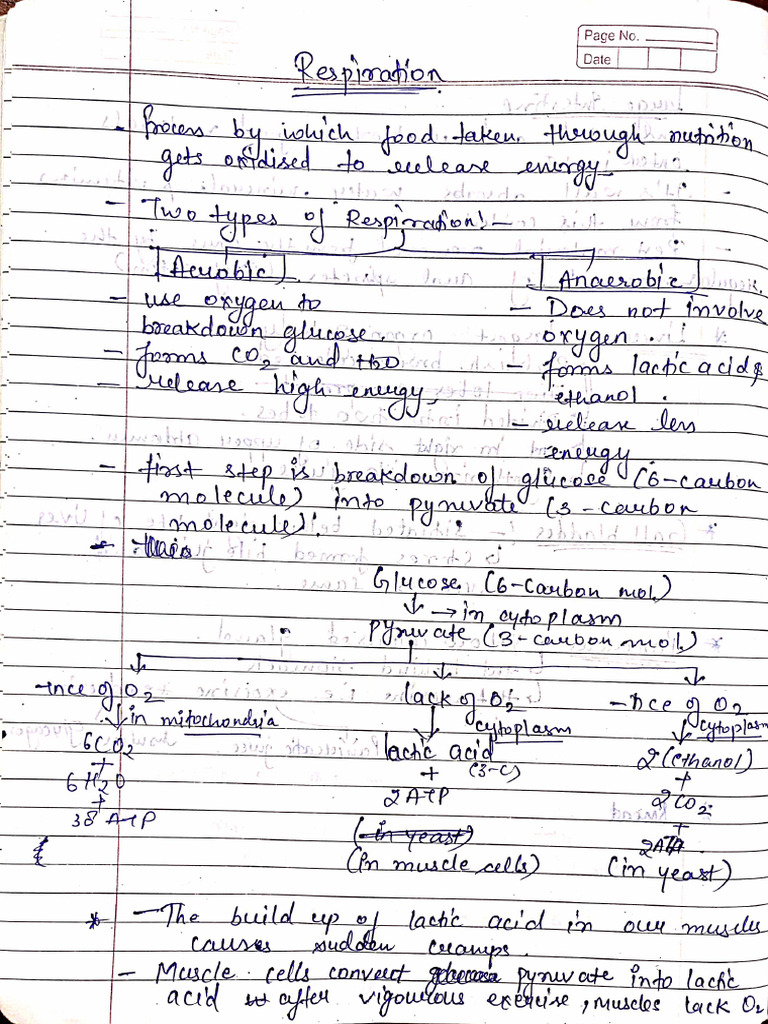 Page No.
Date
Respiration
- Process by which food taken through nutrition
gets oxidised to release energy
- Two types of Respiration:-
Aerobic
Anaerobic
- use oxygen to
breakdown glucose.
- forms CO2 and H2O
- release high energy
- Does not involve
oxygen.
- forms lactic acid &
ethanol.
- release less
energy
- first step is breakdown of glucose (6-carbon
molecule) into pyruvate (3-carbon
molecule).
Glucose (6-Carbon mol.)
↓ → in cytoplasm
Pyruvate (3-carbon mol.)
-nce of O2
↓ in mitochondria
6CO2
+
6H2O
+
38 ATP
lack of O2
↓ cytoplasm
lactic acid
(3-C)
+
2ATP
(in yeast)
(in muscle cells)
-nce of O2
↓ cytoplasm
2(ethanol)
+
2CO2
+
2ATP
(in yeast)
* - The build up of lactic acid in our muscles
causes sudden cramps.
- Muscle cells convert pyruvate into lactic
acid after vigourous exercise, muscles lack O2